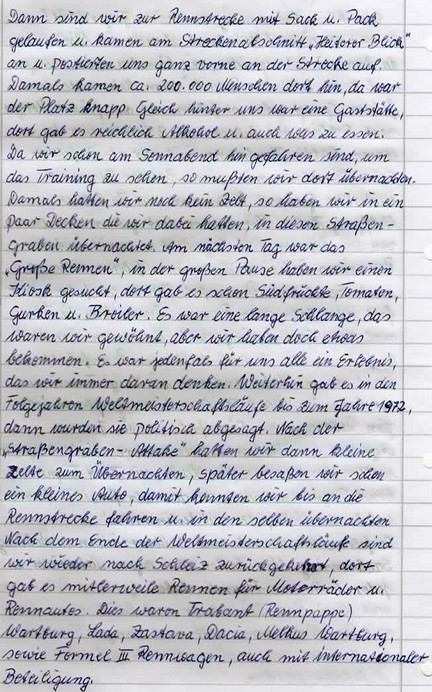 Dann sind wir zur Rennstrecke mit Sack u. Pack
gelaufen u. kamen am Streckenabschnitt „Heiterer Blick"
an u. postierten uns ganz vorne an der Strecke auf.
Damals kamen ca. 200.000 Menschen dort hin, da war
der Platz knapp. Gleich hinter uns war eine Gaststätte,
dort gab es reichlich Alkohol u. auch was zu essen.
Da wir schon am Sonnabend hin gefahren sind, um
das Training zu sehen, so mußten wir dort übernachten.
Damals hatten wir noch kein Zelt, so haben wir in ein
paar Decken die wir dabei hatten, in diesen Straßen-
graben übernachtet. Am nächsten Tag war das
„Große Rennen", in der großen Pause haben wir einen
Kiosk gesucht, dort gab es schon Südfrüchte, Tomaten,
Gurken u. Broiler. Es war eine lange Schlange, das
waren wir gewöhnt, aber wir haben doch etwas
bekommen. Es war jedenfalls für uns alle ein Erlebnis,
das wir immer daran denken. Weiterhin gab es in den
Folgejahren Weltmeisterschaftsläufe bis zum Jahre 1972,
dann wurden sie politisch abgesagt. Nach der
„Straßengräben-Attake" hatten wir dann kleine
Zelte zum Übernachten, später besaßen wir schon
ein kleines Auto, damit konnten wir bis an die
Rennstrecke fahren u. in den selben übernachten
Nach dem Ende der Weltmeisterschaftsläufe sind
wir wieder nach Schleiz zurückgekehrt, dort
gab es mitlerweile Rennen für Motorräder u.
Rennautos. Dies waren Trabant (Rennpappe)
Wartburg, Lada, Zastava, Dacia, Melkus Wartburg,
sowie Formel III Rennwagen, auch mit internationaler
Beteiligung.